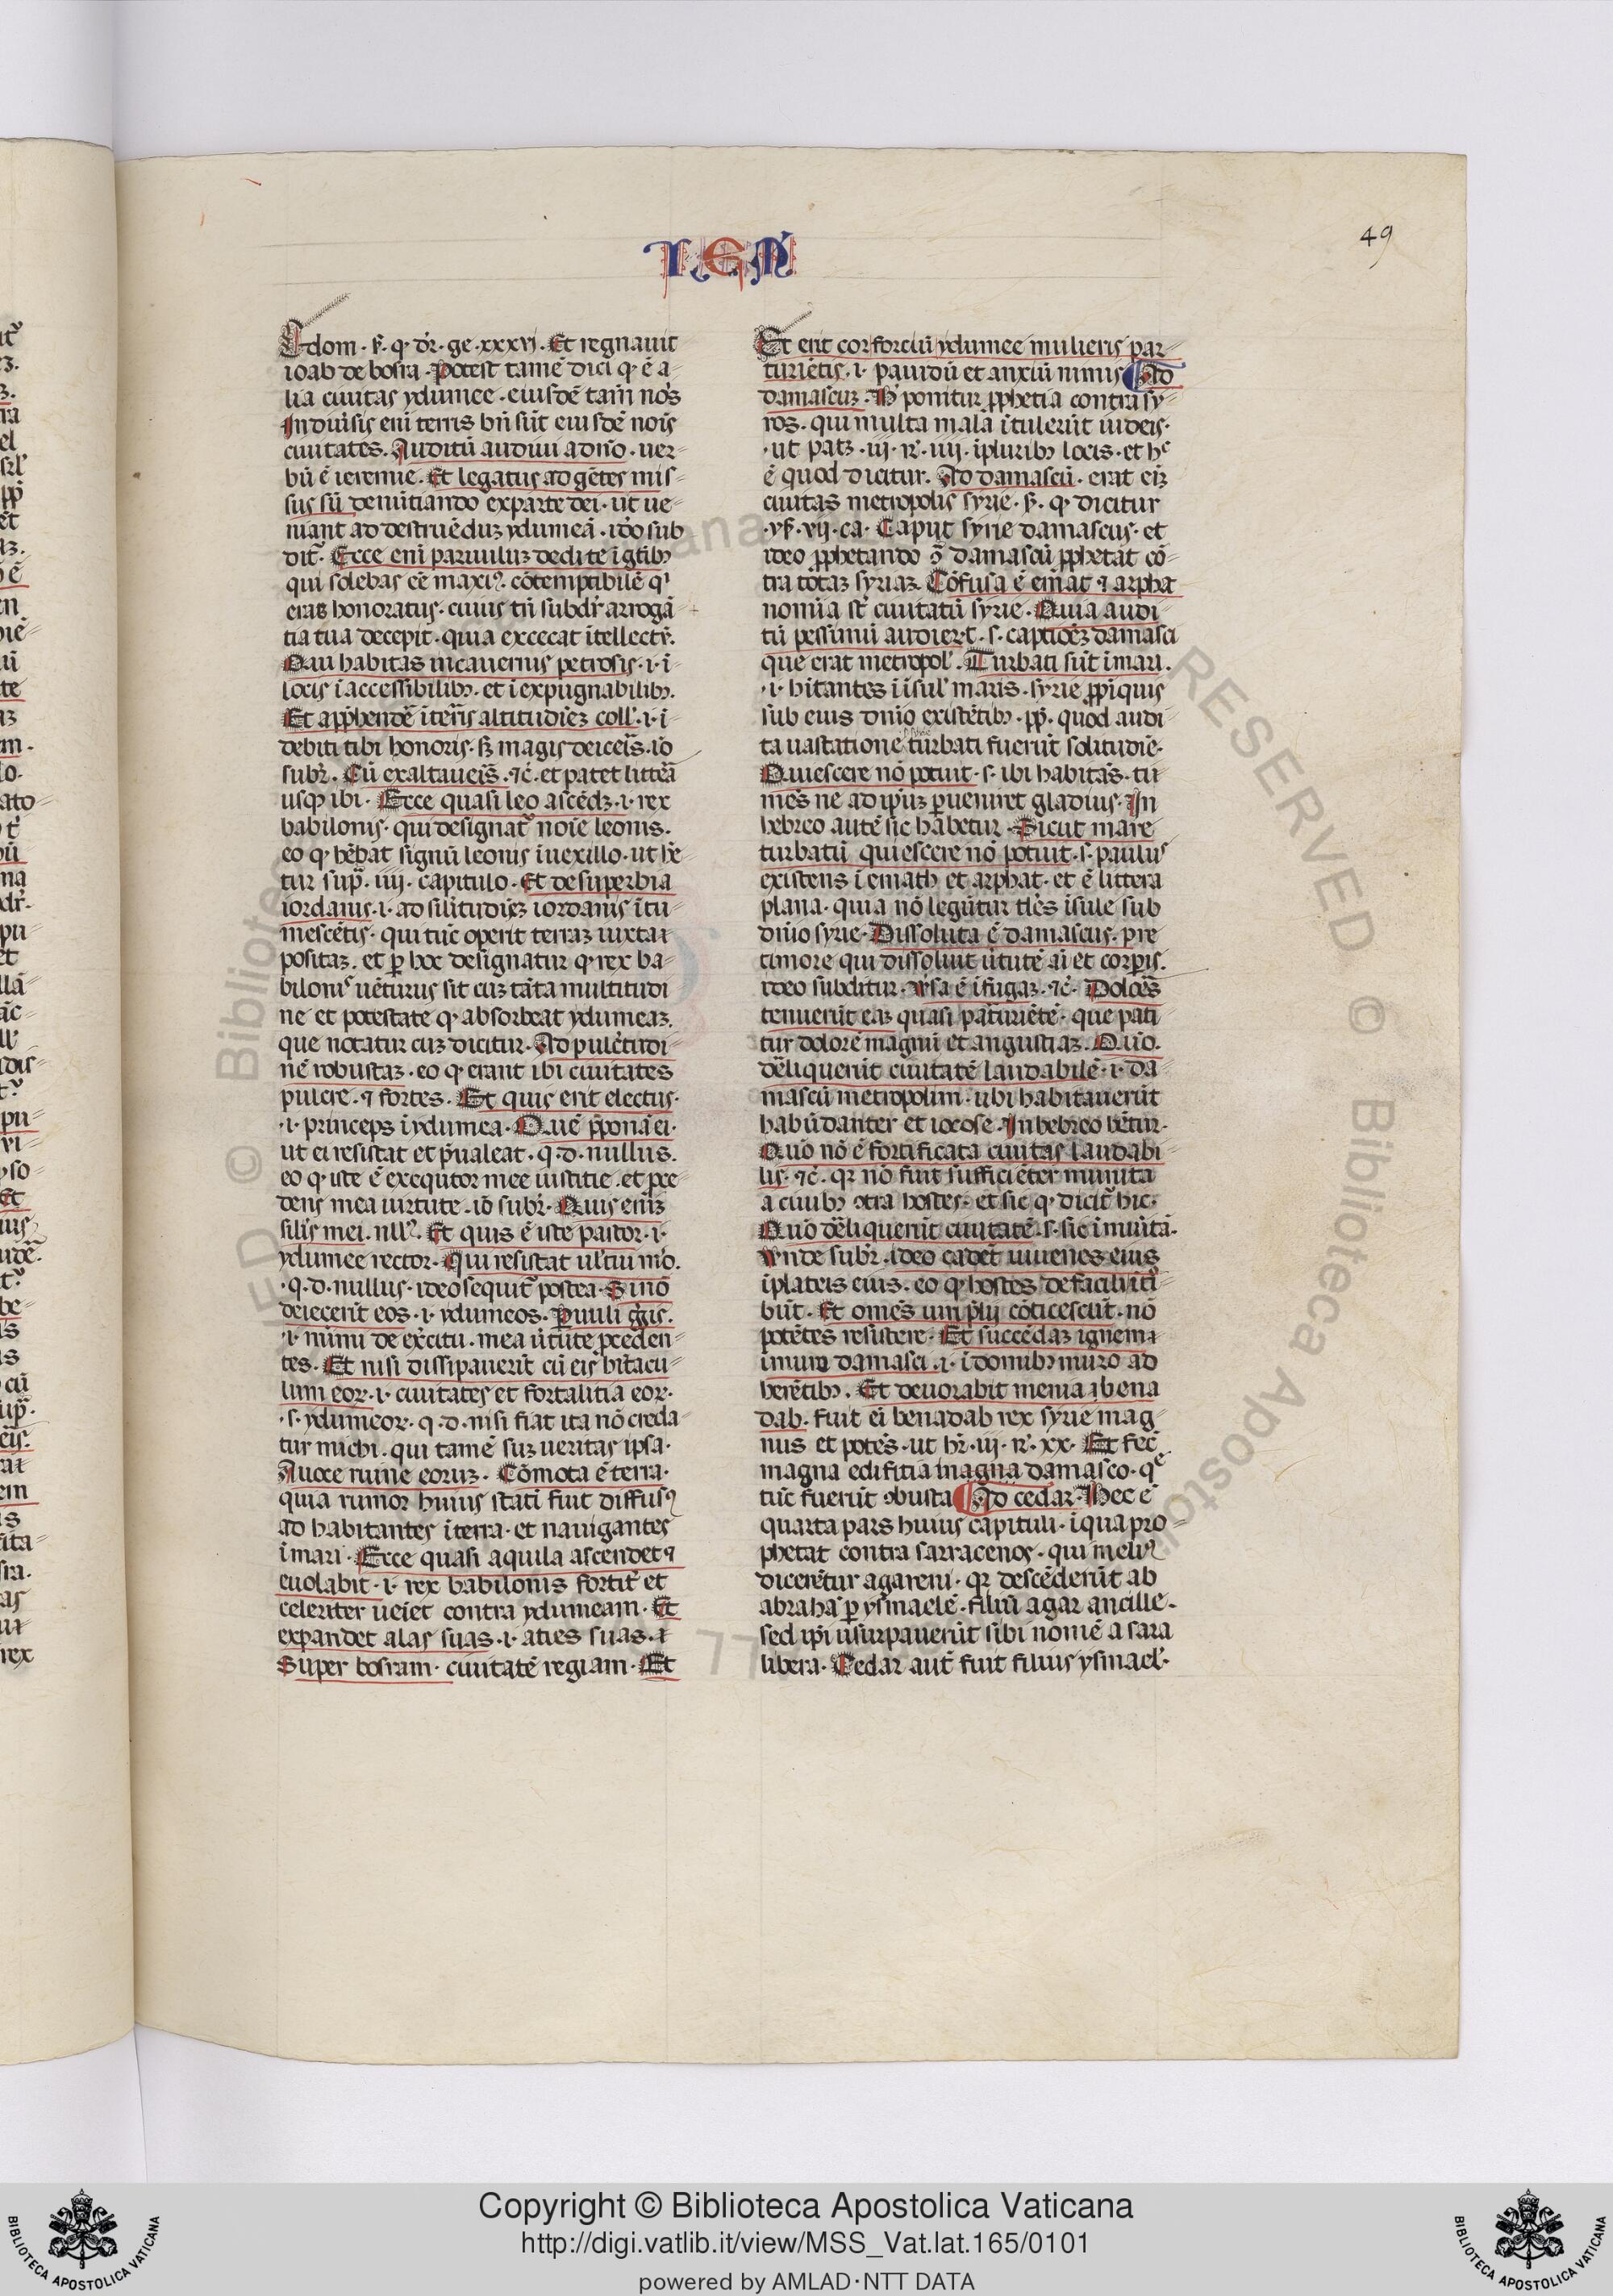 IEM
49
Edom. s. q. dr. ge. xxxvi. Et regnauit
ioab de bosra. Potest tamē dici q. ē a-
lia ciuitas ydumee. eiusdē tam̄ nōis
In diuīsis enī terris bn̄ sūt eiusdē nois
ciuitates. Auditū audiui a dn̄o. uer-
bū ē ieremie. Et legatus ad gētes mis-
sus sū denūtiando ex parte dei. ut ue-
niant ad destruēduz ydumeā. iō sub
dit̄. Ecce enī paruuluz dedi te ī gtībꝫ
qui solebas eē maxiꝰ. cōtemptibilē q
eras honoratus. cuius tn̄ subdr̄ arrogā-
tia tua decepit. quia excecat ītellectū.
Qui habitas in cauernis petrosis. i. ī-
locis īaccessibilibꝫ. et īexpugnabilibꝫ.
Et appħendē īteris altitudīez coll̄. i. ī-
debiti tibi honoris. sꝫ magis deiceīs. iō
subr̄. Cū exaltaueīs. ⁊c̄. et patet littēa
usqꝫ ibi. Ecce quasi leo ascēdꝫ. i. rex
babilonis. qui designat̄ noīe leonis.
eo q. hēbat signū leonis ī uexillo. ut hē-
tur sup̄. iiii. capitulo. Et de superbia
iordanis. i. ad silitudīez iordanis ītu-
mescētis. qui tūc operit terraz iuxta ⁊
positaz. et ꝑ hoc designatur q. rex ba-
bilonis uēturus sit cuz tāta multitudi
ne et potestate q. absorbeat ydumeaz.
que notatur cuz dicitur. Ad pulētudi-
nē robustaz. eo q. erant ibi ciuitates
pulcre. ⁊ fortes. Et quis erit electus.
.i. princeps ī ydumea. Quē p̄ponā ei.
ut ei resistat et p̄ualeat. q. d. nullus.
eo q. iste ē exequtor mee iustitie. et pre
dens mea uirtute. iō subr̄. Quis enīz
silīs mei. nllꝰ. Et quis ē iste pastor. i.
ydumee rector. Qui resistat ultui mō.
.q. d. nullus. ideo sequit̄ postea. Si nō
deiecerit eos. i. ydumeos. Ꝑuuli ḡgis.
.i. minīi de exc̄itu. mea ūtute p̄ceden-
tes. Et nisi dissipauerīt cū eis hītacu-
lum eor. i. ciuitates et fortalitia eor.
.s. ydumeor. q. d. nisi fiat ita nō creda-
tur michi. qui tamē suz ueritas ipsa.
A uoce ruine eoruz. Cōmota ē terra.
quia rumor huius statī fuit diffusꝰ
ad habitantes ī terra. et nauigantes
ī mari. Ecce quasi aquila ascendet ⁊
euolabit. i. rex babilonis fortit̄ et
celeriter ueiet contra ydumeam. Et
expandet alas suas. i. aties suas. ⁊
Super bosram. ciuitatē regiam. Et
Et erit cor fortiū ydumee mulieris par-
turiētis. i. pauidū et anxiū nimis. Ad
damascuz. Hic ponitur ꝓphetia contra sy-
ros. qui multa mala ītulerūt iudeis.
.ut patꝫ. iii. r̄. iiii. ī pluribꝫ locis. et hᶜ
ē quod dicitur. Ad damascū. erat eīz
ciuitas metropolis syrie. s. q. dicitur
.ys. vii. ca. Caput syrie damascus. et
ideo ꝓphetando ꝯ damascū ꝓphetat cō-
tra totaz syriaz. Cōfusa ē emat ⁊ arphat
nomīa st̄ ciuitatū syrie. Quia audi-
tū pessimū audier̄t. s. captiōez damasci
que erat metropol̄. Turbati sūt ī mari.
.i. hitantes ī īsul̄ maris. syrie ꝓpīquis
sub eius dn̄io existētibꝫ. pp̄. quod audi-
ta uastatione turbati fuerūt solitudīe.
Quiescere nō potuit. s. ibi habitās. ti-
mēs ne ad ip̄uz ꝑueniret gladius. In
hebreo autē sic habetur. Sicut mare
turbatū quiescere nō potuit. s. paulus
existens ī emath et arphat. et ē littera
plana. quia nō legūtur tles īsule sub
dn̄io syrie. Dissoluta ē damascus. pre
timore qui dissoluit ūtutē aī et corpis.
ideo subditur. Ursa ē ī fugaz. ⁊c̄. Dolores
tenuerūt eaz quasi parturiētē. que pati
tur dolorē magnū et angustiaz. Quō.
dēliquerūt ciuitatē laudabilē. i. da-
mascū metropolim. ubi habitauerūt
habūdanter et iocose. In hebreo hētur.
Quō nō ē fortificata ciuitas laudabi-
lis. ⁊c̄. qr nō fuit sufficiēter munita
a ciuibꝫ ꝯtra hostes. et sic q. dicit̄ hic.
Quō dēliquerūt ciuitatē. s. sic īmunitā.
Unde subr̄. ideo cadēt iuuenes eius
ī plateis eius. eo q. hostes de facili ītra
būt. Et omēs uiri p̄lij cōticescūt. nō
potētes resistere. Et succēdaz ignem ⁊
ī muro damasci. i. ī domibꝫ muro ad
herētibꝫ. Et deuorabit menia ibena
dab. fuit eī benadab rex syrie mag
nus et potēs. ut hr̄. iii. r̄. xx. Et fec̄
magna edifitia magna damasco. qᵉ
tūc fuerūt ꝯbusta. Ad cedar. Hec ē
quarta pars huius capituli. ī qua pro-
phetat contra sarracenos. qui meliꝰ
dicerētur agareni. qr descēderūt ab
abrahā ꝑ ysmaelē. filiū agar ancille.
sed ip̄i usurpauerūt sibi nomē a sara
libera. Cedar aut̄ fuit filius ysmael̄.
Copyright © Biblioteca Apostolica Vaticana
http://digi.vatlib.it/view/MSS_Vat.lat.165/0101
powered by AMLAD·NTT DATA
BIBLIOTECA APOSTOLICA VATICANA
BIBLIOTECA APOSTOLICA VATICANA